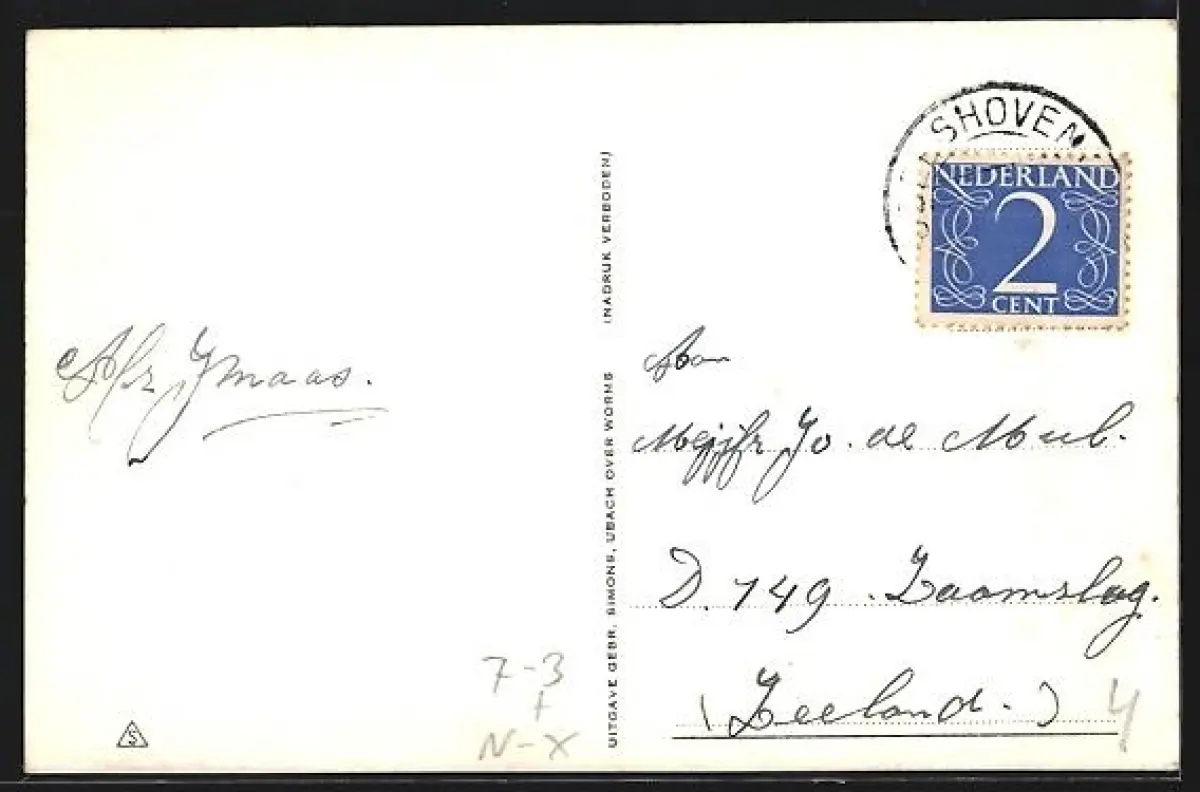 SHOVEN
NEDERLAND
2
CENT
Afz Ymaas.
UITGAVE GEBR. SIMONS, UBACH OVER WORMS (NADRUK VERBODEN)
Aan
Mejjfr Jo. de Mul.
D. 149. Zaamslag.
(Zeeland.)
4
7-3
+
N-X
S